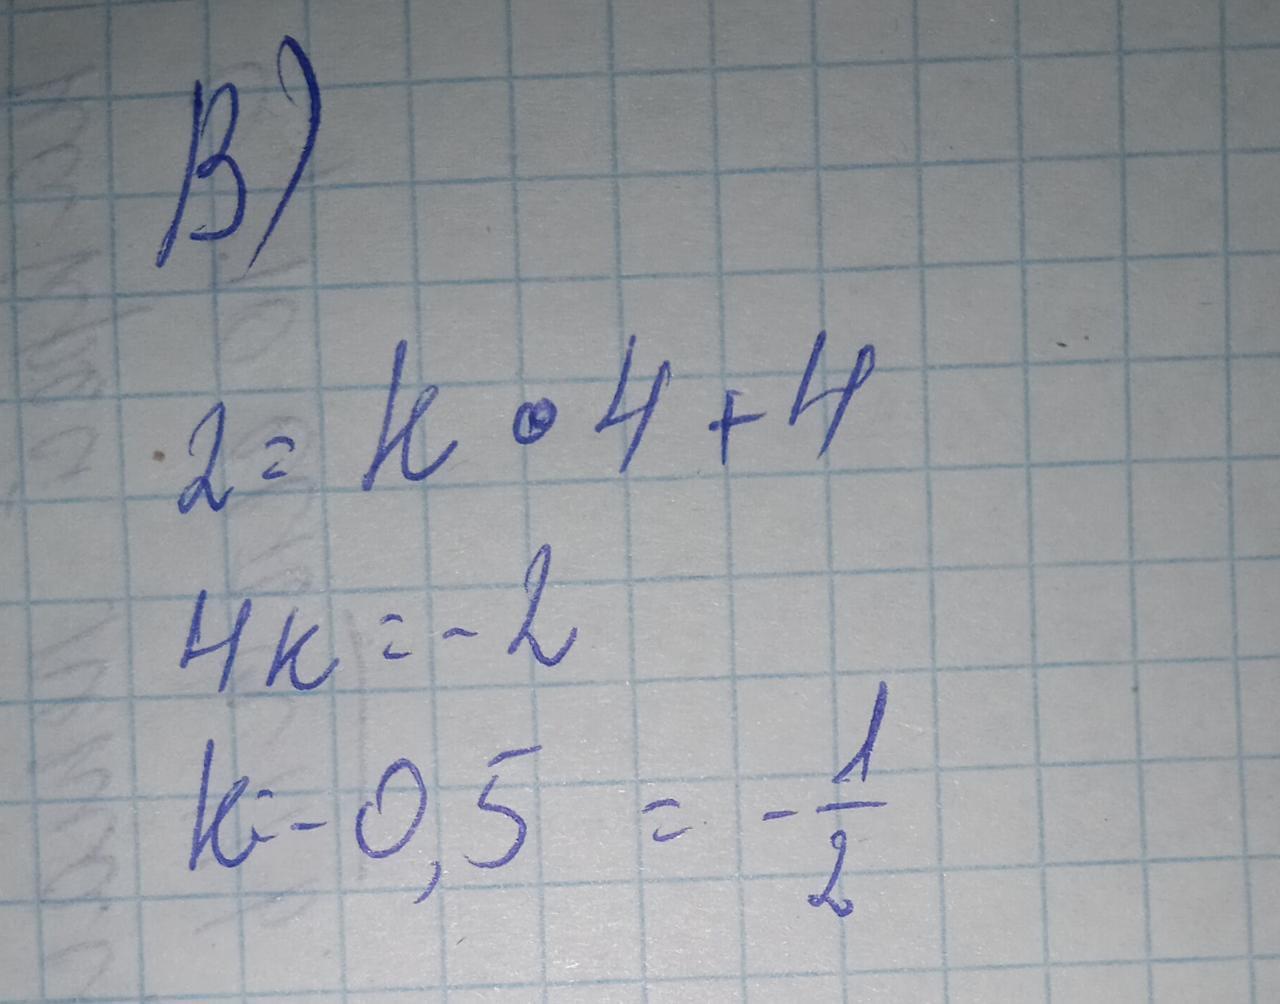 В)
2 = k • 4 + 4
4k = - 2
k = - 0,5 = - 1/2